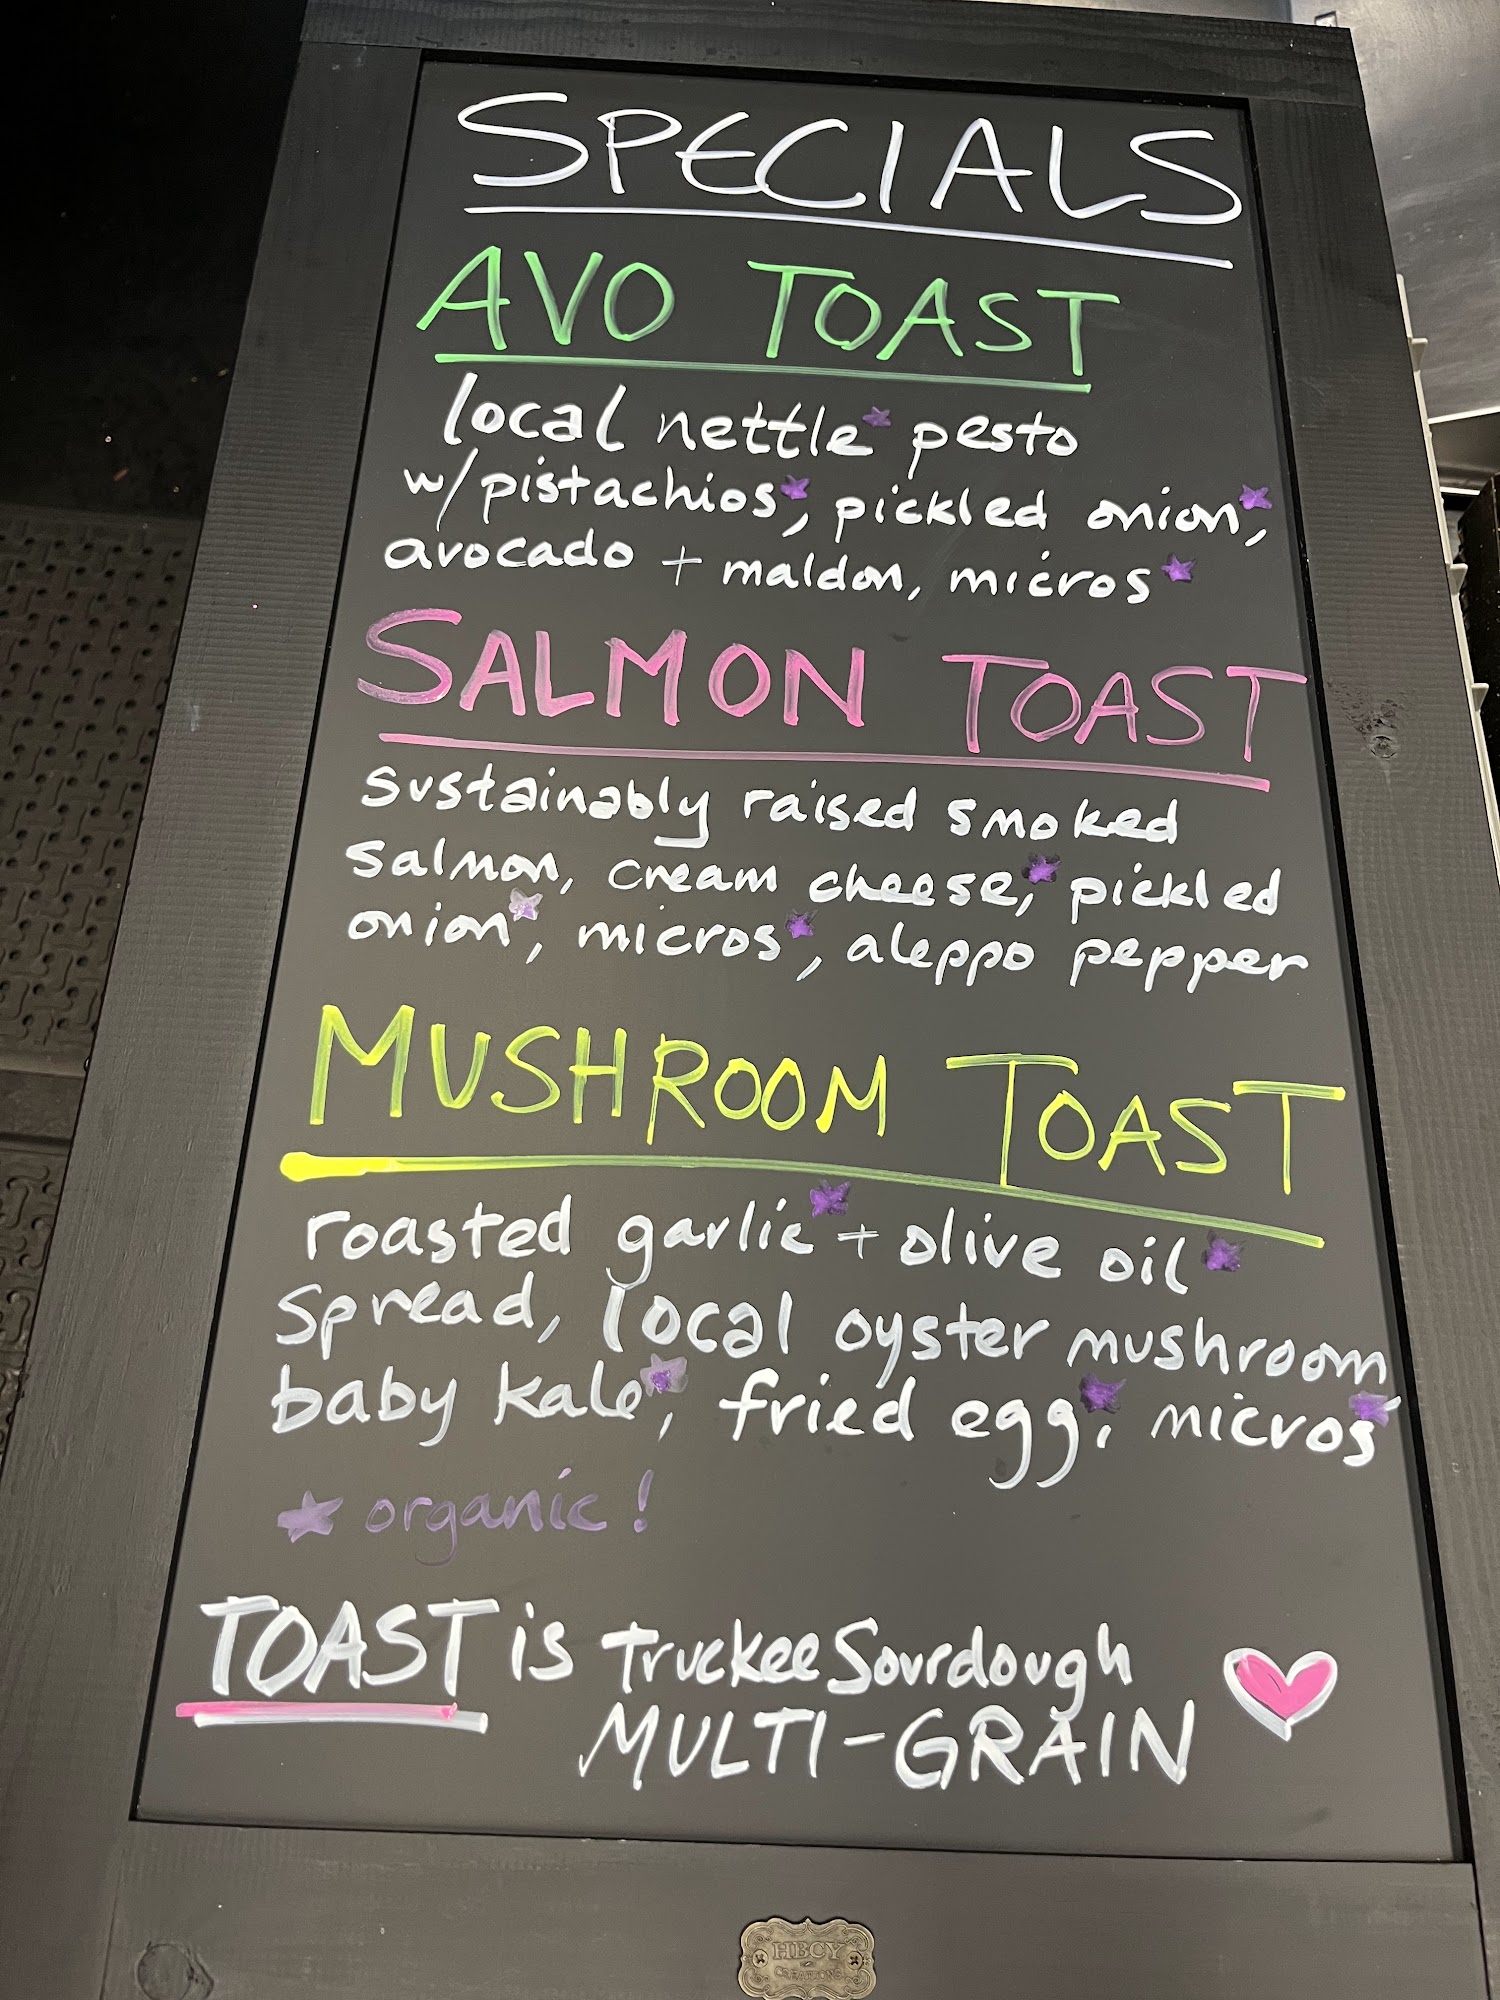 SPECIALS
AVO TOAST
local nettle★ pesto
w/pistachios★, pickled onion★,
avocado + maldon, micros★
SALMON TOAST
sustainably raised smoked
salmon, cream cheese,★ pickled
onion★, micros★, aleppo pepper
MUSHROOM TOAST
roasted garlic★ + olive oil★
spread, local oyster mushroom,
baby kale★, fried egg★, micros★
★ organic!
TOAST is Truckee Sourdough
MULTI-GRAIN ♥
HBCY
CREATIONS